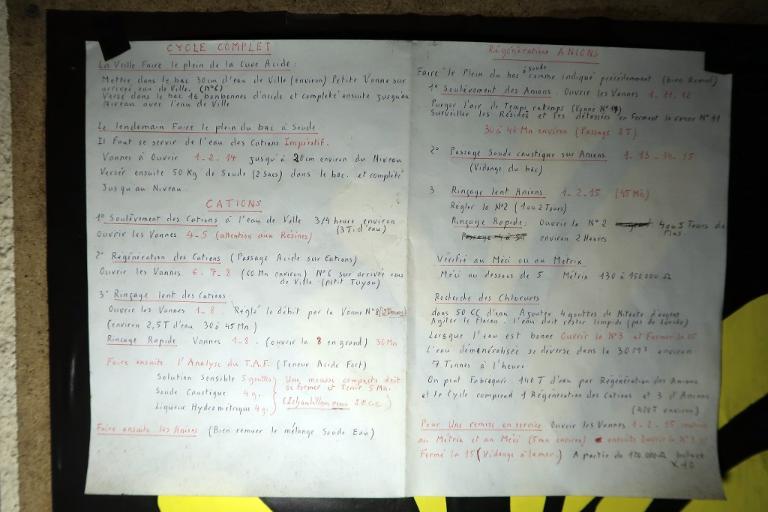 CYCLE COMPLET
La Veille Faire le plein de la Cuve Acide :
Mettre dans le bac 30cm d'eau de Ville (environ) Petite Vanne sur
arrivée eau de Ville. (N°6)
Verse dans le bac 16 bonbonnes d'acide et complète ensuite jusqu'au
Niveau avec l'eau de Ville
Le lendemain Faire le plein du bac à Soude
Il Faut se servir de l'eau des Cations Impératif.
Vannes à Ouvrir 1-2-14 jusqu'à 20cm environ du Niveau
Verser ensuite 50 Kg de Soude (2 Sacs) dans le bac. et complété
Jusqu'au Niveau
CATIONS
1° Soulèvement des Cations à l'eau de Ville 3/4 heures environ
(3T. d'eau)
Ouvrir les Vannes 4-5 (attention aux Résines)
2° Régénération des Cations (Passage Acide sur Cations)
Ouvrir les Vannes 6-7-8 (60 Mn environ) N°6 sur arrivée eau
de Ville (petit Tuyau)
3° Rinçage lent des Cations
Ouvrir les Vannes 1-8. Reglé le débit par la Vanne N°8
(environ 2,5T d'eau 30 à 45 Mn)
Rinçage Rapide Vannes 1-8. (ouvrir la 8 en grand) 30 Mn
Faire ensuite l'Analyse du T.A.F. (Teneur Acide Fort)
Solution Sensible 5 gouttes
Soude Caustique 4 g.
Liqueur Hydrométrique 4 g.
Une mousse compacte doit
se former et Tenir 5 Mn.
(Echantillon
Faire ensuite les Anions (Bien remuer le mélange Soude Eau)
Régénération ANIONS
Faire le Plein du bac à soude comme indiqué précédemment (bien Remué)
1° Soulèvement des Anions. Ouvrir les Vannes 1-11-12
Purger l'air de Temps en temps (Vanne N°
Surveiller les Résines et les détassées en Fermant la vanne N° 11
30 à 40 Mn environ (Passage 2T)
2° Passage Soude caustique sur Anions 1-13-14-15
(Vidange du bac)
3 Rinçage lent Anions 1-2-15 (45 Mn)
Régler le N°2 (1 ou 2 Tours)
Rinçage Rapide: Ouvrir le N° 2 4 ou 5 Tours
environ 2 Heures
Vérifié au Méci ou au Metrix
Méci au dessous de 5 Métrix 130 à 150000 Ω
Recherche des Chlorures
dans 50 CC d'eau Ajouter 4 gouttes de Nitrate d'argent
Agiter le Flacon. l'eau doit rester limpide (pas de
Lorsque l'eau est bonne Ouvrir le N°3 et Fermer le 15
l'eau déminéralisée se déverse dans le 30 M3 environ
7 Tonnes à l'heure
On peut Fabriquer 140 T d'eau par Régénération des Anions
et le Cycle comprend 1 Régénération des Cations et 3 d'Anions
(420T environ)
Pour Une remise en service Ouvrir les Vannes 1-2-15
au Métrix et au Méci (5 mn environ) ensuite Ouvrir le N°3 et
Fermé la 15 (Vidange à la mer.) A partir de 120.000 Ω
X 10